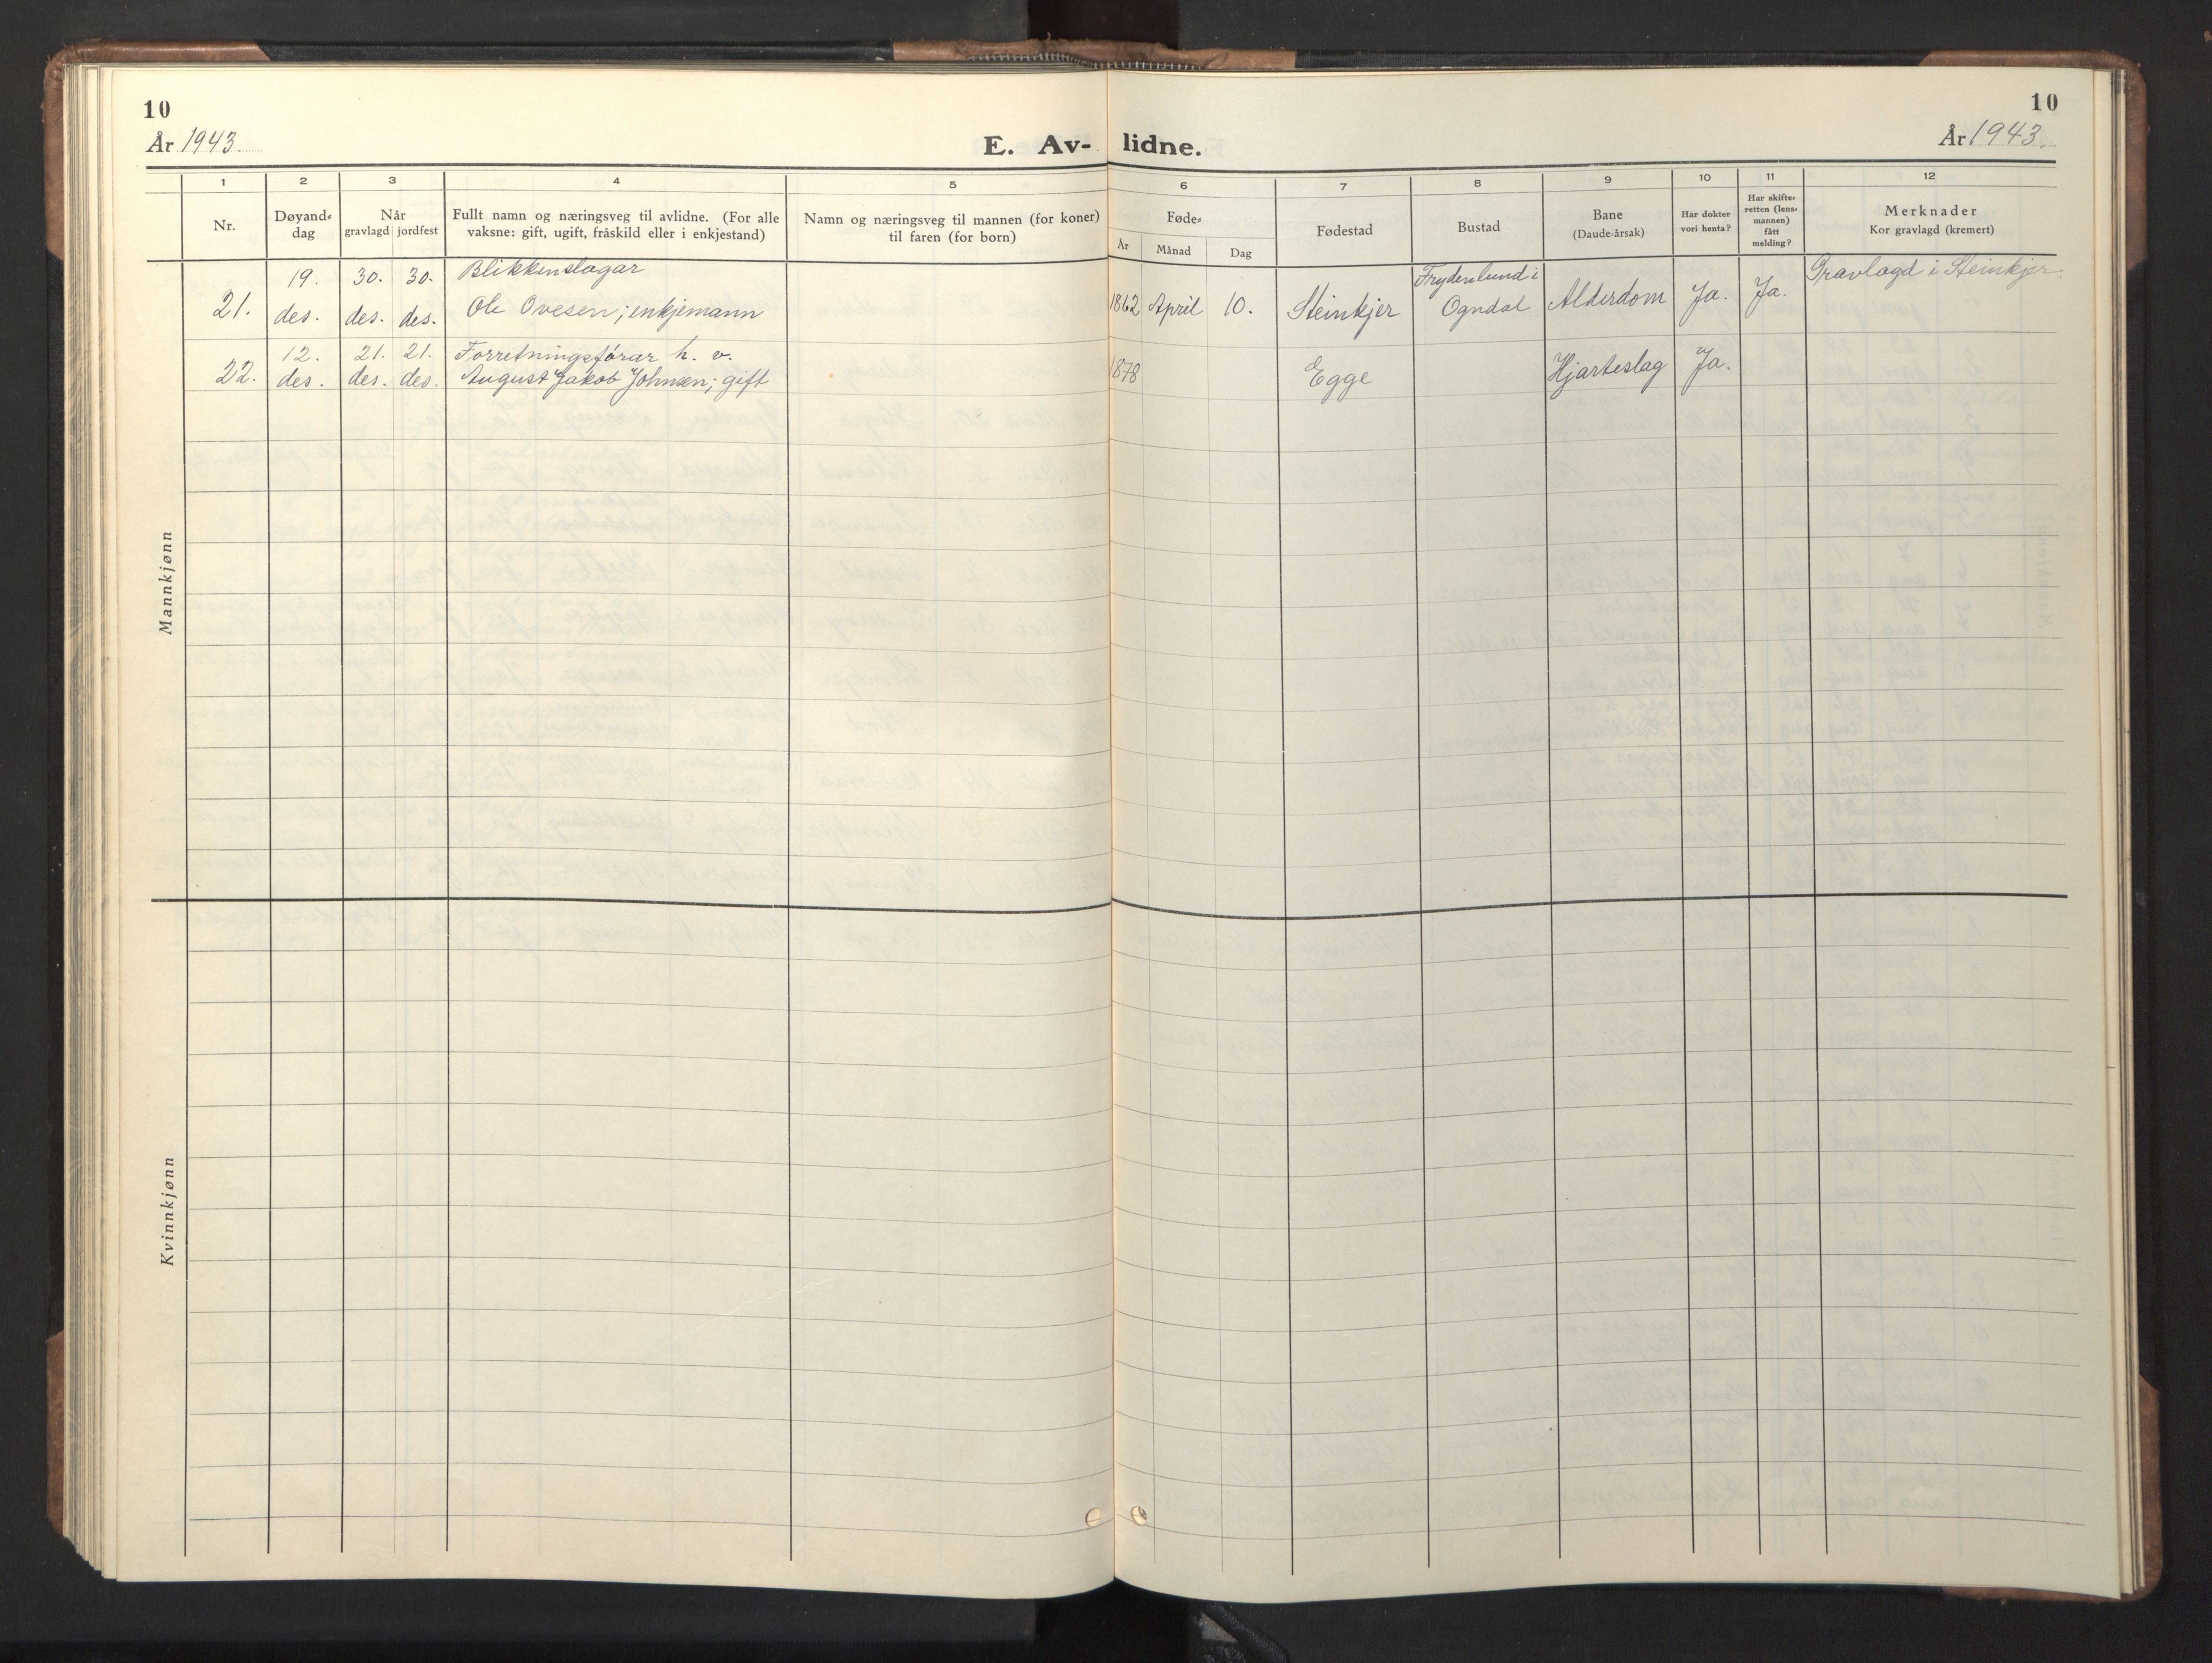 10
År 1943.
E. Av-
lidne.
10
År 1943.
1
2
3
4
5
6
7
8
9
10
11
12
Nr.
Døyand-
dag
Når
gravlagd jordfest
Fullt namn og næringsveg til avlidne. (For alle
vaksne: gift, ugift, fråskild eller i enkjestand)
Namn og næringsveg til mannen (for koner)
til faren (for born)
Føde-
År
Månad
Dag
Fødestad
Bustad
Bane
(Daude-årsak)
Har dokter
vori henta?
Har skifte-
retten (lens-
mannen)
fått
melding?
Merknader
Kor gravlagd (kremert)
Mannkjønn
21.
19.
des.
30.
des.
30.
des.
Blikkenslagar
Ole Ovesen; enkjemann
1862 April 10.
Steinkjer
Frydenlund i
Ogndal
Alderdom
Ja.
Ja.
Gravlagd i Steinkjer.
22.
12.
des.
21.
des.
21.
des.
Forretningsførar h. v.
August Jakob Johnsen; gift
1878
Egge
Hjarteslag
Ja.
Kvinnkjønn